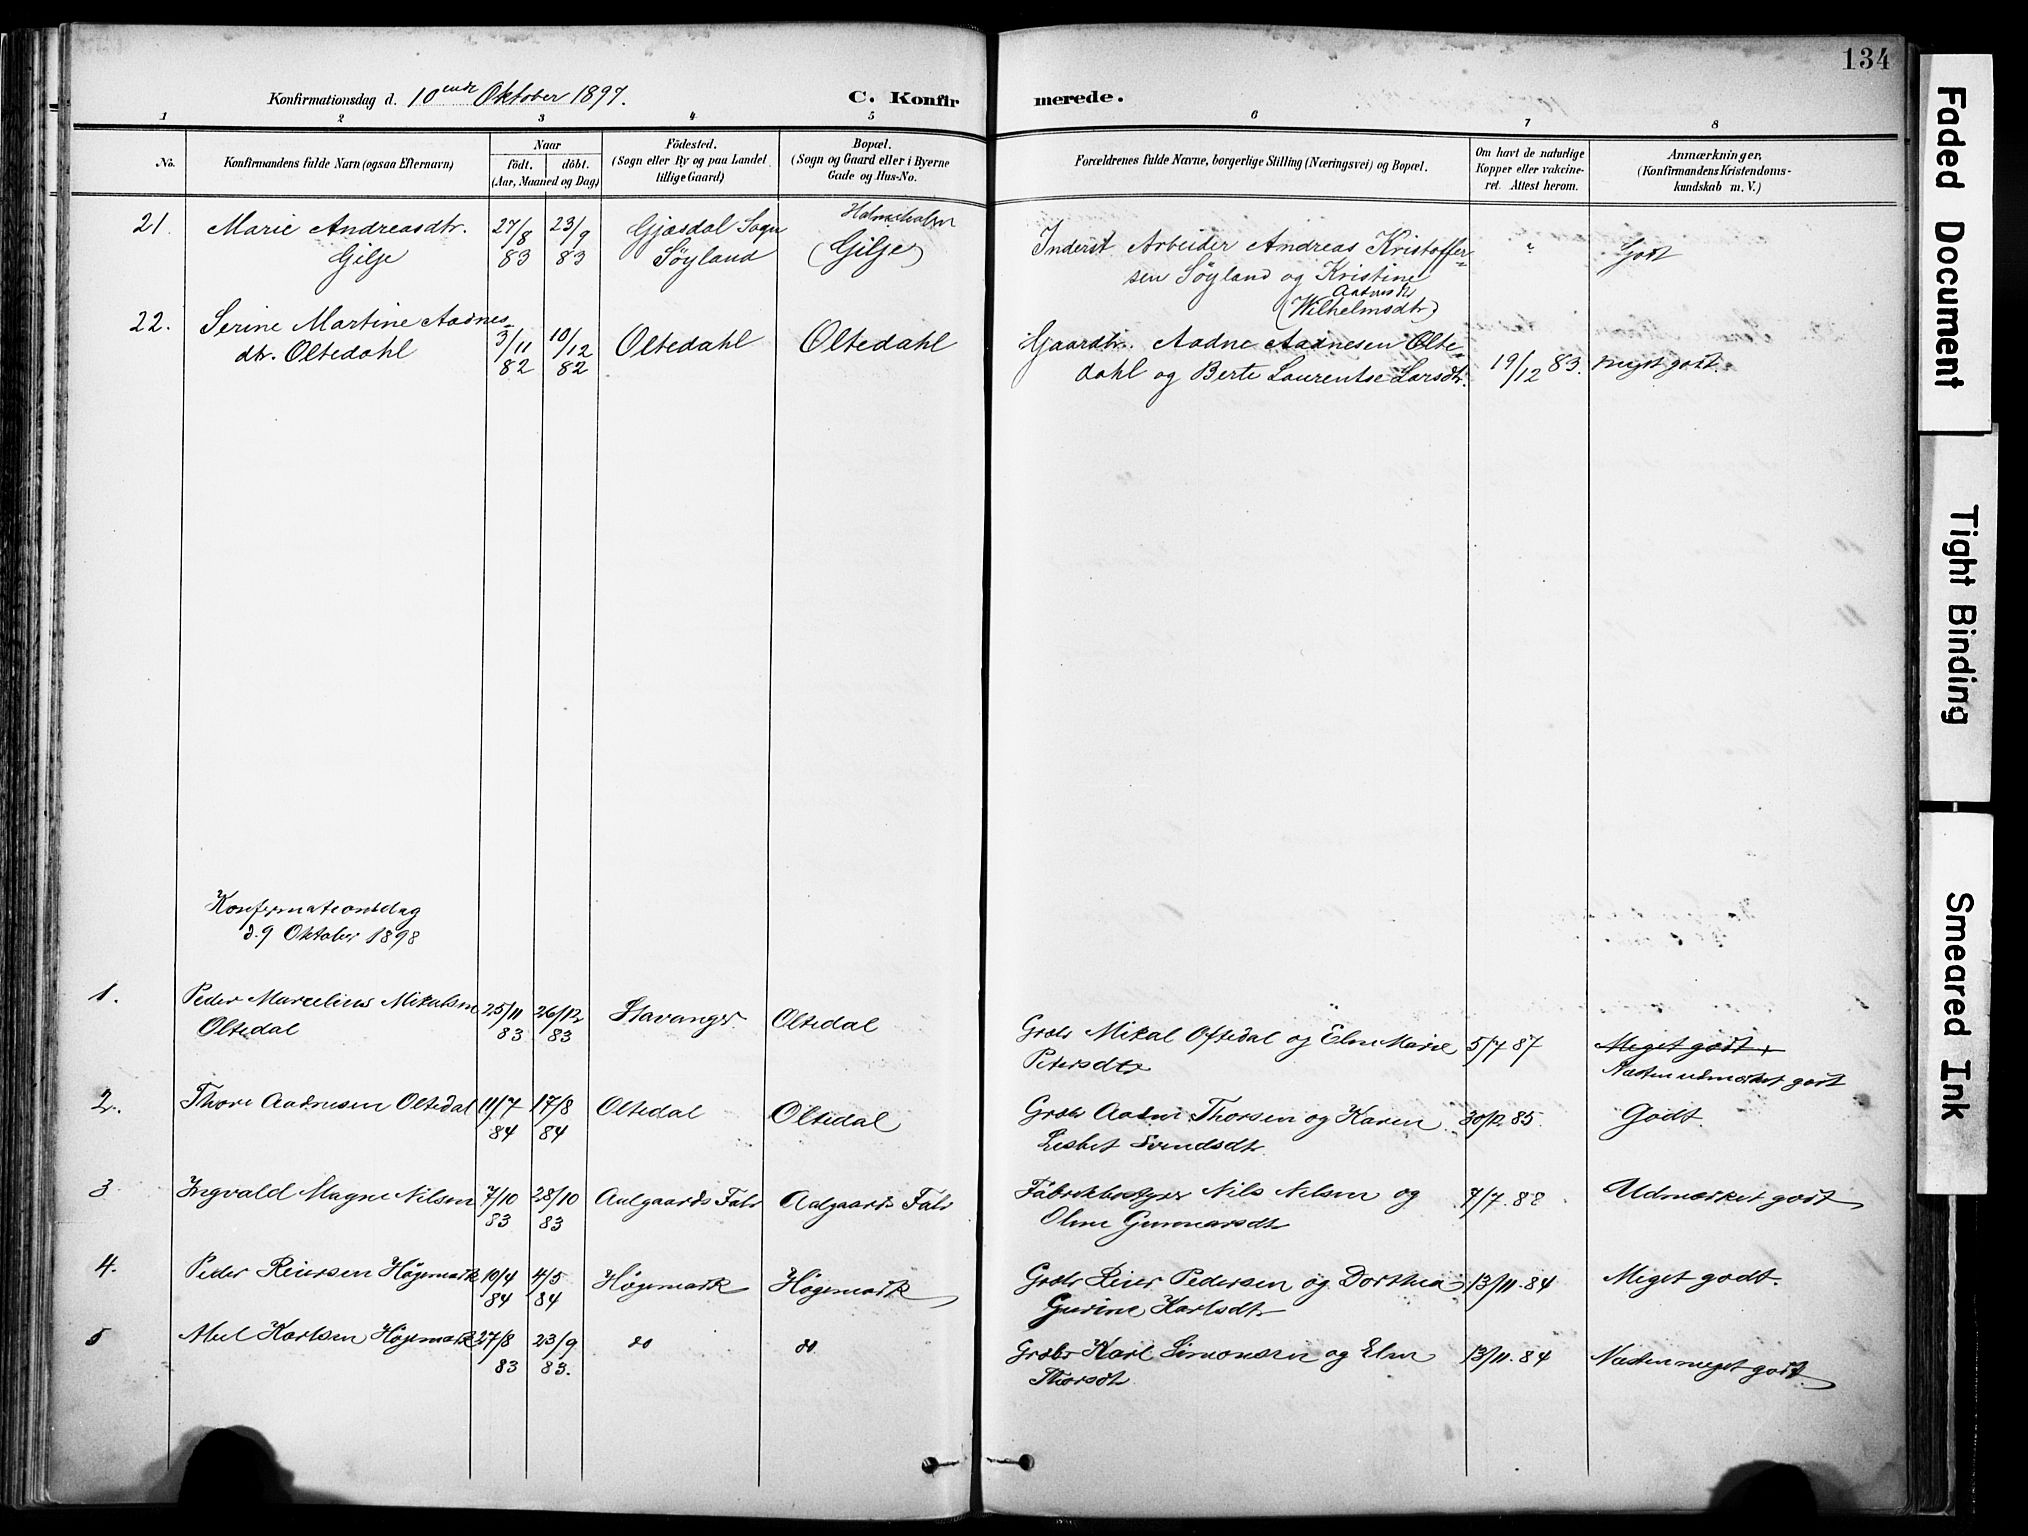 134
Konfirmationsdag d. 10ende Oktober 1897.
C. Konfirmerede.
1 2 3 4 5 6 7 8
No.
Konfirmandens fulde Navn (ogsaa Efternavn)
Naar
født. døbt.
(Aar, Maaned og Dag)
Fødested.
(Sogn eller By og paa Landet
tillige Gaard)
Bopæl.
(Sogn og Gaard eller i Byerne
Gade og Hus-No.
Forældrenes fulde Navne, borgerlige Stilling (Næringsvei) og Bopæl.
Om havt de naturlige
Kopper eller vakcine-
ret. Attest herom.
Anmærkninger,
(Konfirmandens Kristendoms-
kundskab m. V.)
21. Marie Andreasdtr. 27/8 23/9 Gjæsdal Sogn
Gilje 83 83 Søyland (Gilje)
Inderst Arbeider Andreas Kristoffer-
sen Søyland og Kristine " Godt
Aadnesdtr
(Wilhelmsdtr)
22. Serine Martine Aadnes-
dtr. Oltedahl 3/11 82 10/12 82 Oltedahl Oltedahl
Gaardbr. Aadne Aadnesen Olte-
dahl og Berte Laurentse Larsdtr. 19/12 83. Meget godt.
Konfirmationsdag
d. 9 Oktober 1898
1. Peder Marcelius Mikalsen 25/11 26/12 Stavanger Oltedal
Oltedal 83 83
Grdbr Mikal Oftedal og Elen Marie 5/7 87 Meget godt
Petersdtr Næsten udmerket godt
2. Thore Aadnesen Oltedal 11/7 17/8 Oltedal Oltedal
84 84
Grdbr Aadne Thorsen og Karen 30/12 85. Godt.
Lesbet Svendsdtr
3 Ingvald Magne Nilsen 7/10 28/10 Aalgaards Fabr Aalgaards Fabr
83 83
Fabrikbestyrer Nils Nilsen og 7/7. 88 Udmærket godt
Oline Gunnarsdtr
4. Peder Reiersen Høgemark 10/4 4/5 Høgemark Høgemark
84 84
Grdbr Reier Pedersen og Dorthea 13/11. 84 Meget godt.
Gurine Karlsdtr
5 Abel Karlsen Høgemark 27/8 23/9 do do
83 83.
Grdbr Karl Simonsen og Elen 13/11. 84 Næsten meget godt
Thorsdt.
Faded Document
Tight Binding
Smeared Ink